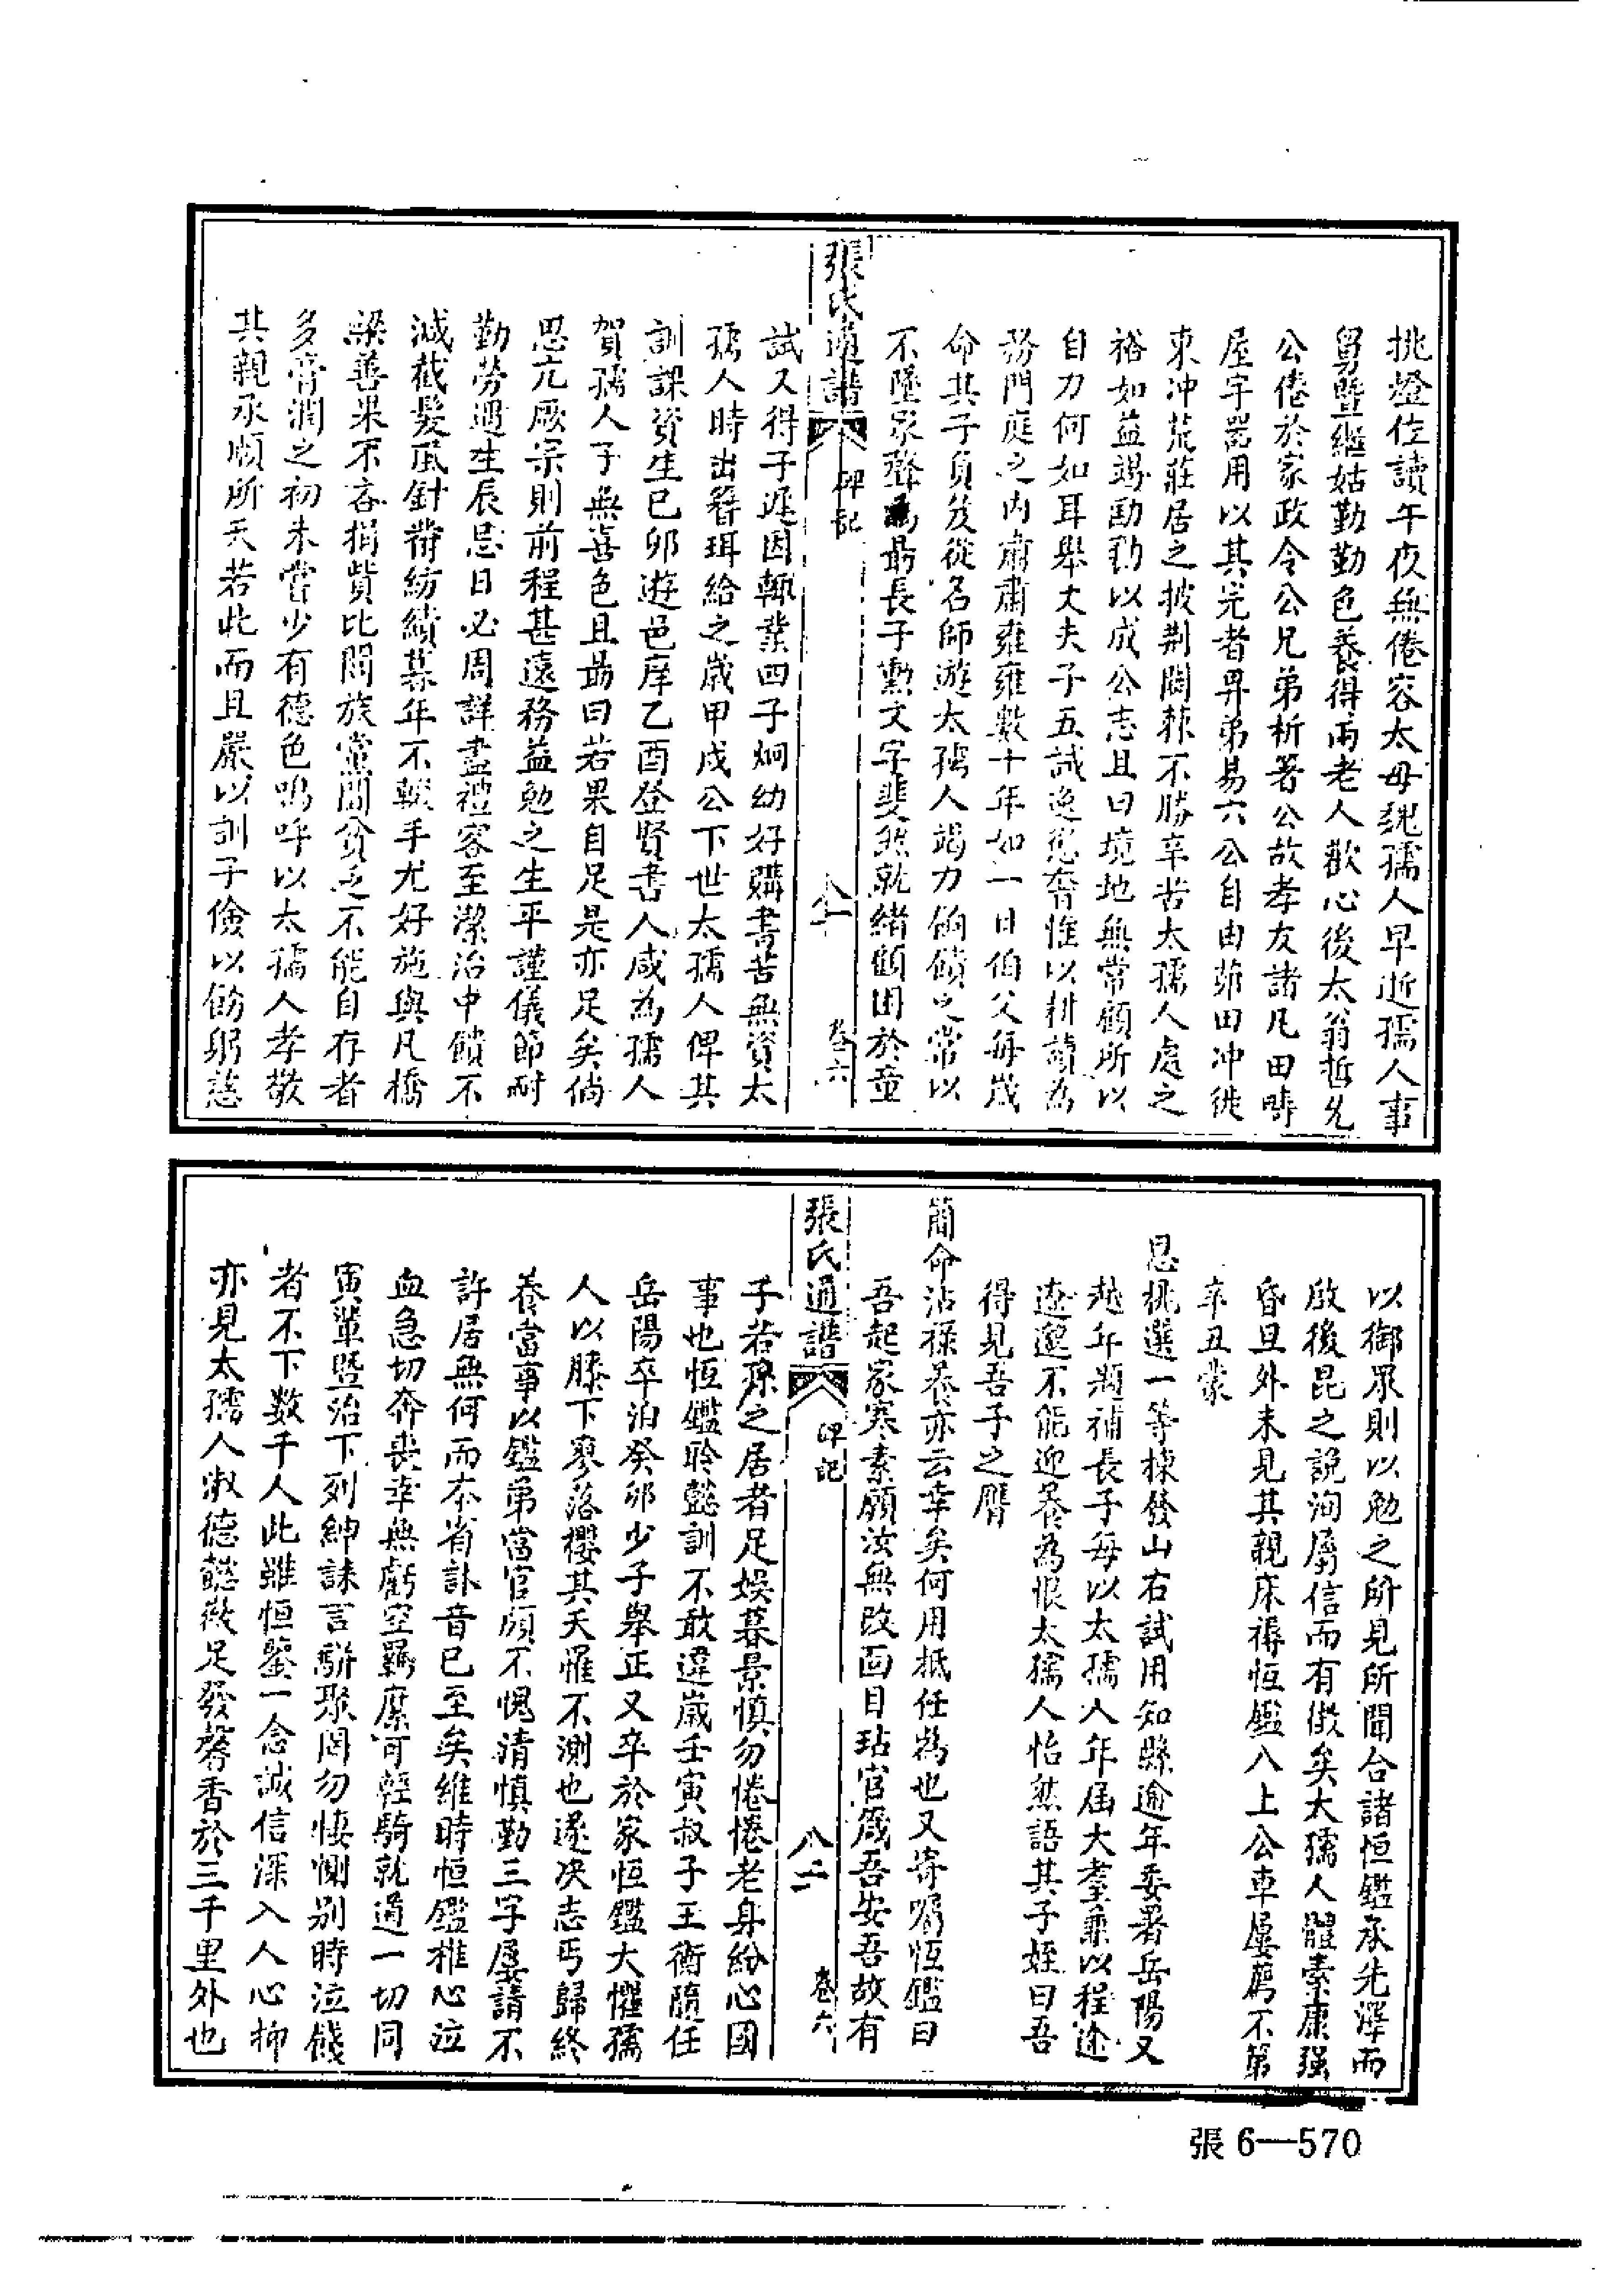 挑燈佐讀午夜無倦容太母魏孺人早逝孺人事
舅暨繼姑勤勤色養得兩老人歡心後太翁哲先
公倦於家政令公兄弟析箸公故孝友諸凡田疇
屋宇器用以其完者畀弟易六公自由茆田冲徙
東冲荒莊居之披荆闢棘不勝辛苦太孺人處之
裕如益竭勤勷以成公志且曰境地無常顧所以
自力何如耳舉丈夫子五誡逸懲奢惟以耕讀為
務門庭之内肅肅雍雍數十年如一日伯父每歲
命其子負笈從名師遊太孺人竭力餉饋之常以
不墜家聲為勗長子勳文字斐然就緒顧困於童
張氏通譜 碑記 八一 卷六
試又得子遲因輟業四子炯幼好購書苦無資太
孺人時出簪珥給之歲甲戌公下世太孺人俾其
訓課資生己卯遊邑庠乙酉登賢書人咸為孺人
賀孺人子無喜色且勗曰若果自足是亦足矣倘
思亢厥宗則前程甚遠務益勉之生平謹儀節耐
勤勞遇生辰忌日必周詳盡禮客至潔治中饋不
減截髮風針黹紡績暮年不輟手尤好施與凡橋
梁善果不吝捐貲比閭族黨間貧乏不能自存者
多膏潤之初未嘗少有德色嗚呼以太孺人孝敬
其親承順所天若此而且嚴以訓子儉以飭躬慈
以御眾則以勉之所見所聞合諸恒鑑承先澤而
啟後昆之說洵屬信而有徵矣太孺人體素康强
昏旦外未見其親床褥恒鑑八上公車屢薦不第
辛丑蒙
恩挑選一等揀發山右試用知縣逾年委署岳陽又
越年題補長子每以太孺人年屆大耋兼以程途
遼邈不能迎養為恨太孺人怡然語其子姪曰吾
得見吾子之膺
簡命沾祿養亦云幸矣何用抵任為也又寄囑恒鑑曰
吾起家寒素願汝無改面目玷官箴吾安吾故有
張氏通譜 碑記 八二 卷六
子若孫之居者足娛暮景慎勿惓惓老身紛心國
事也恒鑑聆懿訓不敢違歲壬寅叔子王衡隨任
岳陽卒洎癸卯少子舉正又卒於家恒鑑大懼孺
人以膝下寥落櫻其天罹不測也遂决志丐歸終
養當事以鑑弟當官頗不愧清慎勤三字屢請不
許居無何而本省訃音已至矣維時恒鑑椎心泣
血急切奔喪幸無虧空羈縻可輕騎就道一切同
寅輩暨治下列紳誄言駢聚罔勿悽惻别時泣餞
者不下数千人此雖恒鑒一念誠信深入人心抑
亦見太孺人淑德懿徽足發馨香於三千里外也
張6—570